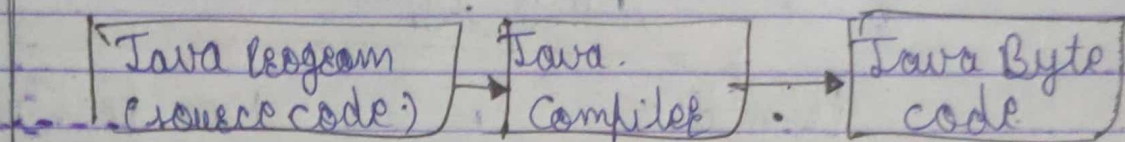 Java Program
(source code)
Java
Compiler
Java Byte
code